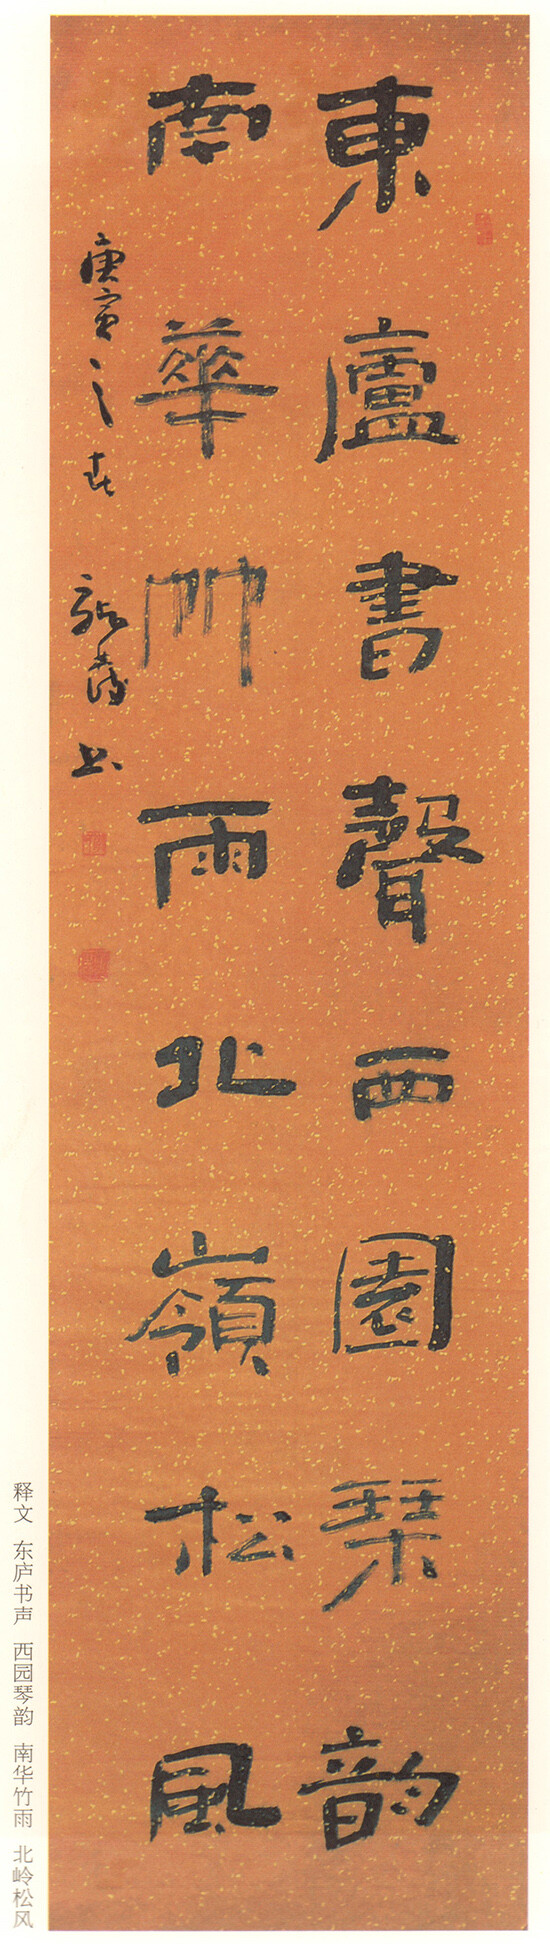 東廬書聲西園琴韵
南華竹雨北嶺松風
庚寅之春
释文 东庐书声 西园琴韵 南华竹雨 北岭松风